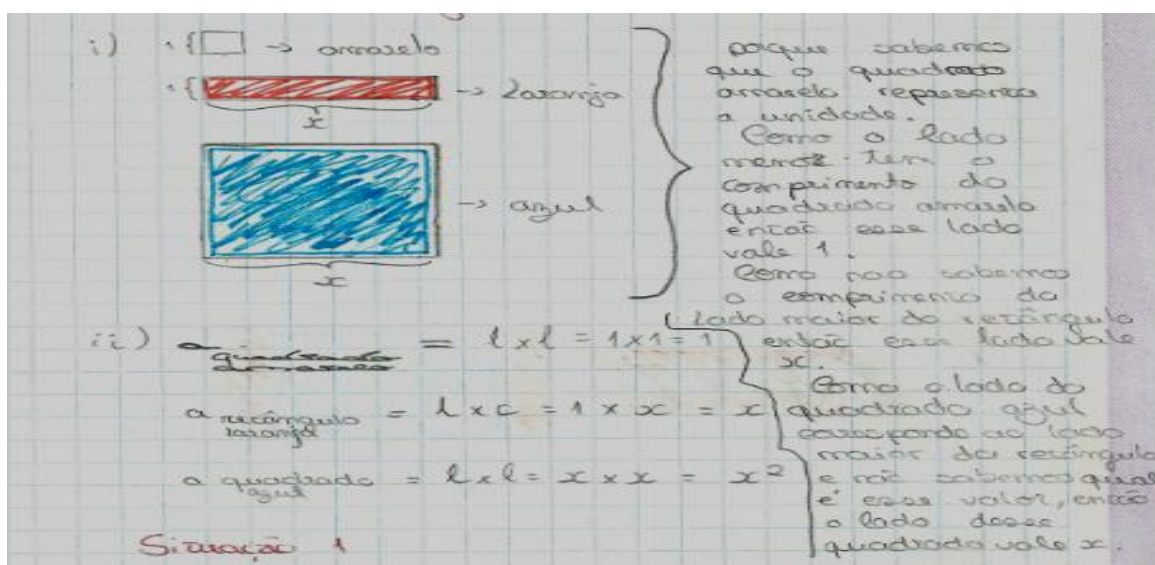 i) 1 { → amarelo
1 { → Laranja
x
→ azul
x
porque sabemos
que o quadrado
amarelo representa
a unidade.
Como o lado
menor tem o
comprimento do
quadrado amarelo
então esse lado
vale 1.
Como não sabemos
o comprimento do
lado maior do retângulo
então esse lado vale
x.
Como o lado do
quadrado azul
corresponde ao lado
maior do retângulo
e não sabemos qual
é esse valor, então
o lado desse
quadrado vale x.
ii) a quadrado amarelo = l x l = 1 x 1 = 1
a rectângulo laranja = l x c = 1 x x = x
a quadrado azul = l x l = x x x = x²
Situação 1